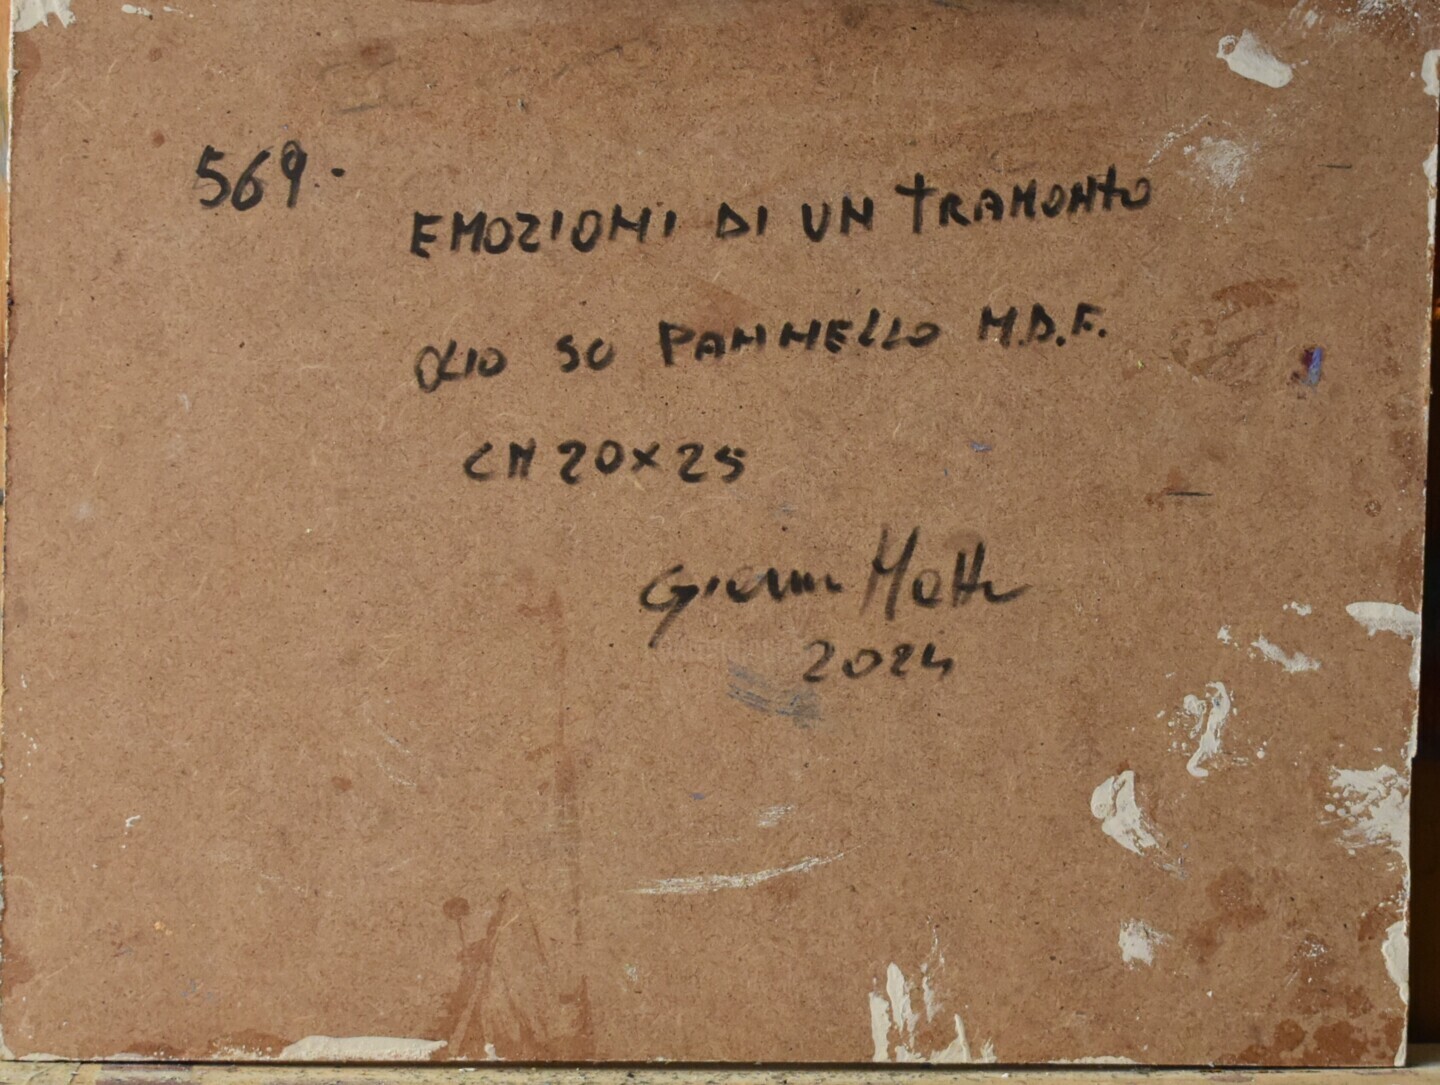 569.-
EMOZIONI DI UN TRAMONTO
OLIO SU PANNELLO M.D.F.
CM 20X25
Gianni Motti
2024